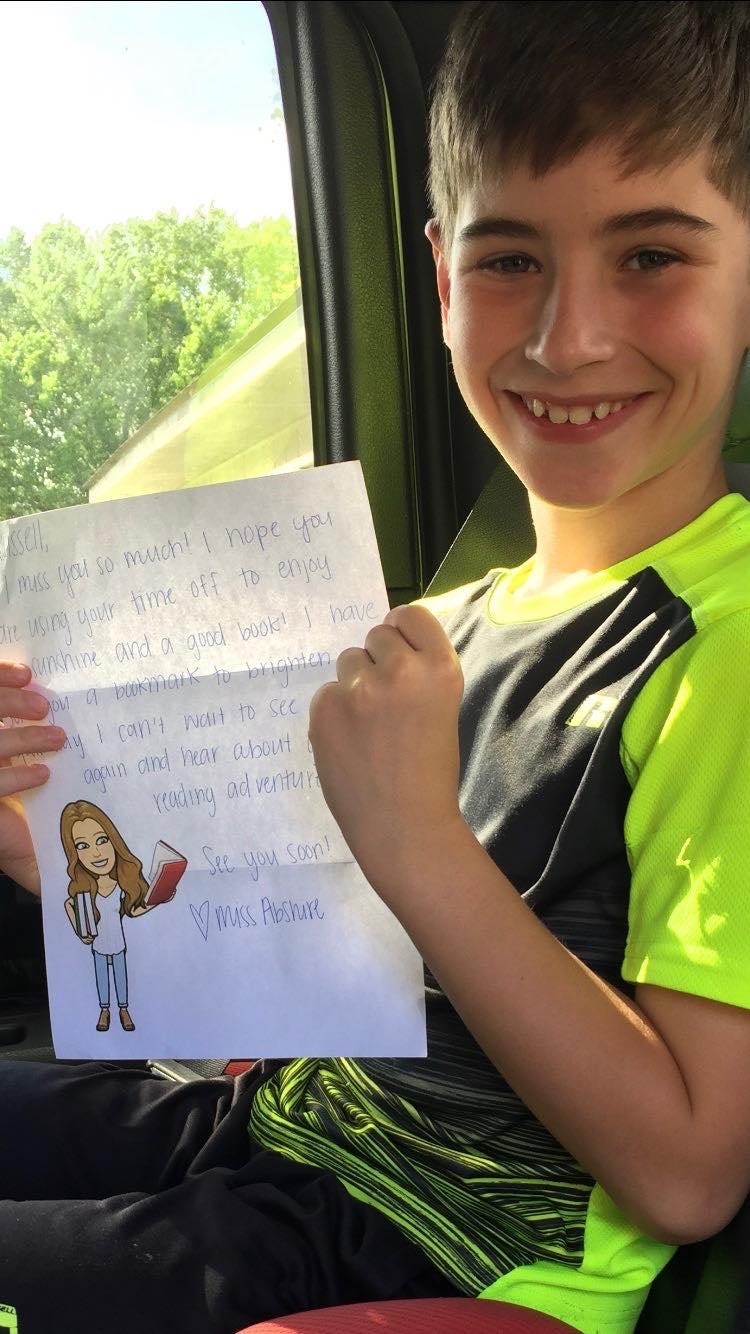 ssell,
I miss you so much! I hope you
are using your time off to enjoy
sunshine and a good book! I have
you a bookmark to brighten
I can't wait to see
again and hear about
reading
See you soon!
♡ Miss Abshire
R